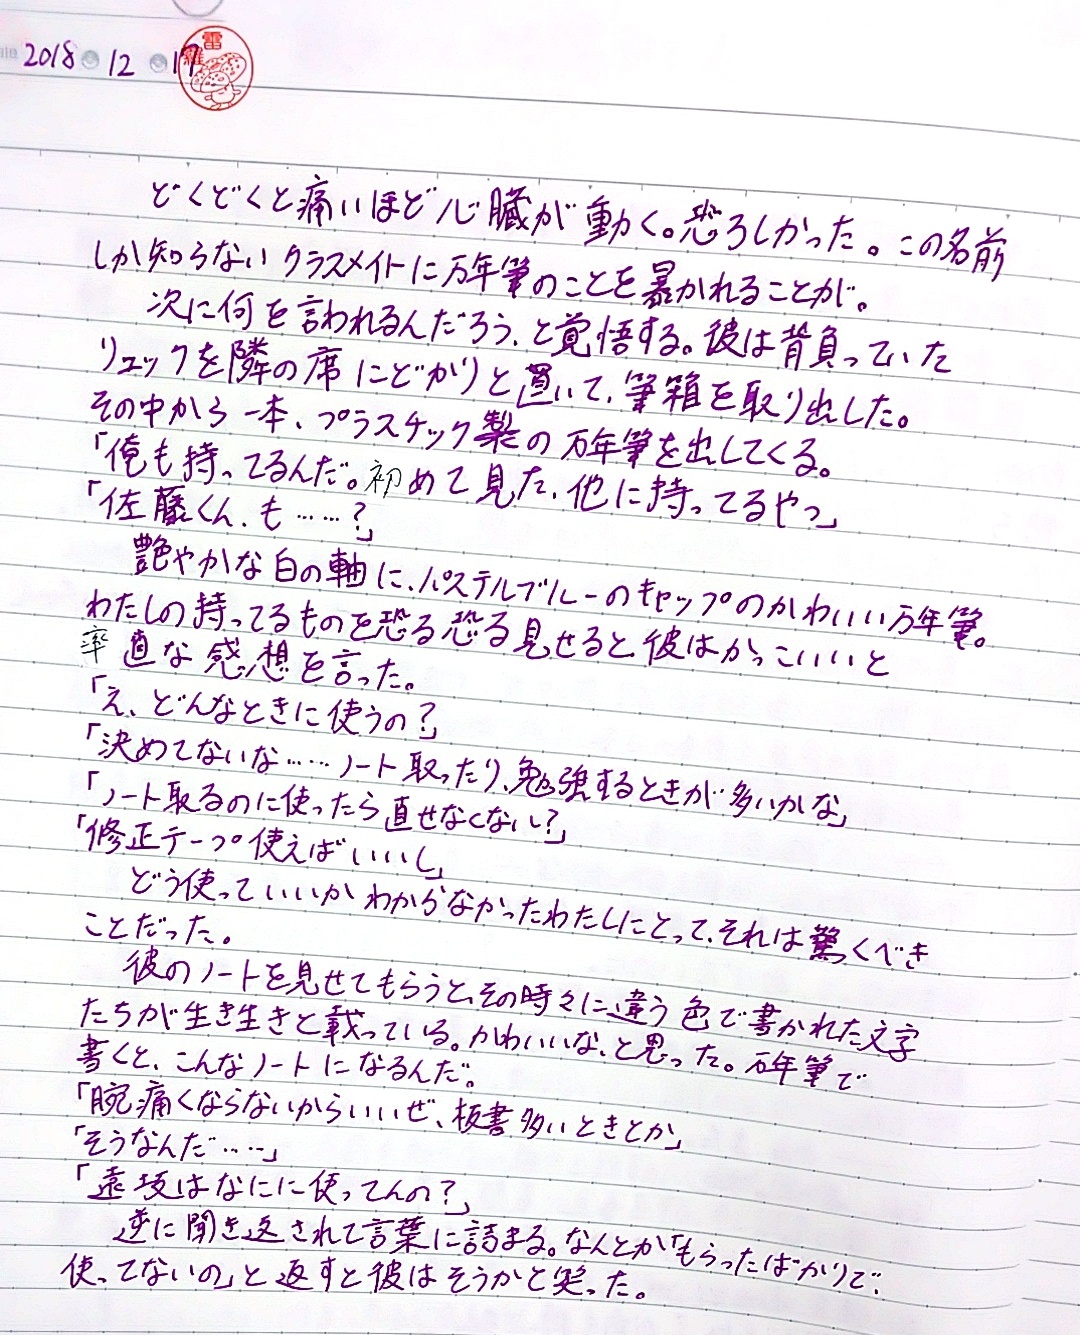 2018 12 17
雷
羅
どくどくと痛いほど心臓が動く。恐ろしかった。この名前
しか知らないクラスメイトに万年筆のことを暴かれることが。
次に何を言われるんだろう、と覚悟する。彼は背負っていた
リュックを隣の席にどかりと置いて、筆箱を取り出した。
その中から一本、プラスチック製の万年筆を出してくる。
「俺も持ってるんだ。初めて見た、他に持ってるやつ」
「佐藤くん、も……?」
艶やかな白の軸に、パステルブルーのキャップのかわいい万年筆。
わたしの持ってるものを恐る恐る見せると彼はかっこいいと
率直な感想を言った。
「え、どんなときに使うの?」
「決めてないな……ノート取ったり、勉強するときが多いかな」
「ノート取るのに使ったら直せなくない?」
「修正テープ使えばいいし」
どう使っていいかわからなかったわたしにとって、それは驚くべき
ことだった。
彼のノートを見せてもらうと、その時々に違う色で書かれた文字
たちが生き生きと載っている。かわいいな、と思った。万年筆で
書くと、こんなノートになるんだ。
「腕痛くならないからいいぜ、板書多いときとか」
「そうなんだ……」
「遠坂はなにに使ってんの?」
逆に聞き返されて言葉に詰まる。なんとか「もらったばかりで、
使ってないの」と返すと彼はそうかと笑った。